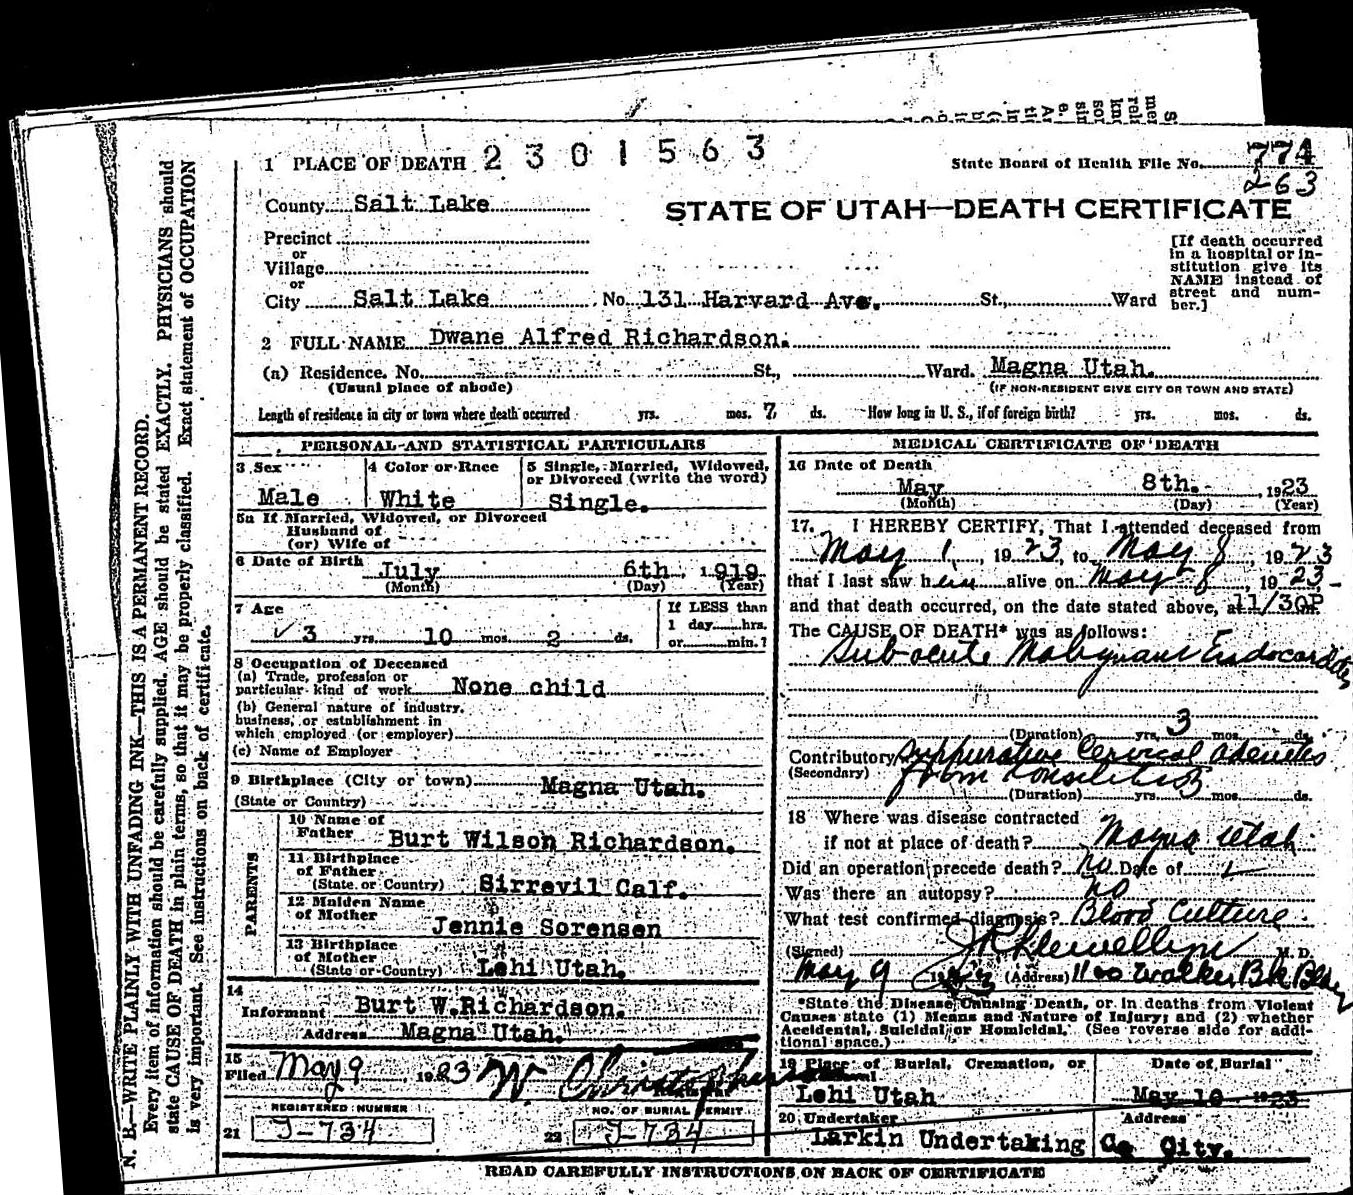 1 PLACE OF DEATH 2301563
State Board of Health File No. 774
263
County Salt Lake
STATE OF UTAH—DEATH CERTIFICATE
Precinct
or
Village
or
City Salt Lake No. 131 Harvard Ave. St., Ward
[If death occurred
in a hospital or in-
stitution give its
NAME instead of
street and num-
ber.]
2 FULL NAME Dwane Alfred Richardson.
(a) Residence. No. St., Ward. Magna Utah.
(Usual place of abode) (IF NON-RESIDENT GIVE CITY OR TOWN AND STATE)
Length of residence in city or town where death occurred yrs. mos. 7 ds. How long in U. S., if of foreign birth? yrs. mos. ds.
PERSONAL AND STATISTICAL PARTICULARS
3 Sex 4 Color or Race 5 Single, Married, Widowed,
or Divorced (write the word)
Male White Single.
5a If Married, Widowed, or Divorced
Husband of
(or) Wife of
6 Date of Birth July 6th, 1919
(Month) (Day) (Year)
7 Age If LESS than
3 yrs. 10 mos. 2 ds. 1 day hrs.
or min.?
8 Occupation of Deceased
(a) Trade, profession or
particular kind of work None child
(b) General nature of industry,
business, or establishment in
which employed (or employer)
(c) Name of Employer
9 Birthplace (City or town) Magna Utah.
(State or Country)
PARENTS
10 Name of
Father Burt Wilson Richardson.
11 Birthplace
of Father
(State or Country) Sirrevil Calf.
12 Maiden Name
of Mother Jennie Sorensen
13 Birthplace
of Mother
(State or Country) Lehi Utah.
14
Informant Burt W.Richardson.
Address Magna Utah.
15
Filed May 9, 1923 W. Christopherson
Registrar
REGISTERED NUMBER NO. OF BURIAL PERMIT
21 J-734 22 J-734
MEDICAL CERTIFICATE OF DEATH
16 Date of Death
May 8th. , 1923
(Month) (Day) (Year)
17. I HEREBY CERTIFY, That I attended deceased from
May 1, 1923, to May 8, 1923
that I last saw him alive on May 8, 1923
and that death occurred, on the date stated above, at 11/30P
The CAUSE OF DEATH* was as follows:
Sub acute Malignant Endocarditis
(Duration) yrs. 3 mos. ds.
Contributory Suppurative Cervical adenitis
(Secondary) from tonsilitis
(Duration) yrs. 3 mos. ds.
18 Where was disease contracted
if not at place of death? Magna Utah
Did an operation precede death? no Date of
Was there an autopsy? no
What test confirmed diagnosis? Blood Culture.
(Signed) J R Llewellyn M. D.
May 9 1923 (Address) 1100 Walker Bk Bldg
*State the Disease Causing Death, or in deaths from Violent
Causes state (1) Means and Nature of Injury; and (2) whether
Accidental, Suicidal, or Homicidal. (See reverse side for addi-
tional space.)
19 Place of Burial, Cremation, or Date of Burial
Removal
Lehi Utah May 10 1923
20 Undertaker Address
Larkin Undertaking Co City.
READ CAREFULLY INSTRUCTIONS ON BACK OF CERTIFICATE
N. B.—WRITE PLAINLY WITH UNFADING INK—THIS IS A PERMANENT RECORD.
Every item of information should be carefully supplied. AGE should be stated EXACTLY. PHYSICIANS should
state CAUSE OF DEATH in plain terms, so that it may be properly classified. Exact statement of OCCUPATION
is very important. See instructions on back of certificate.